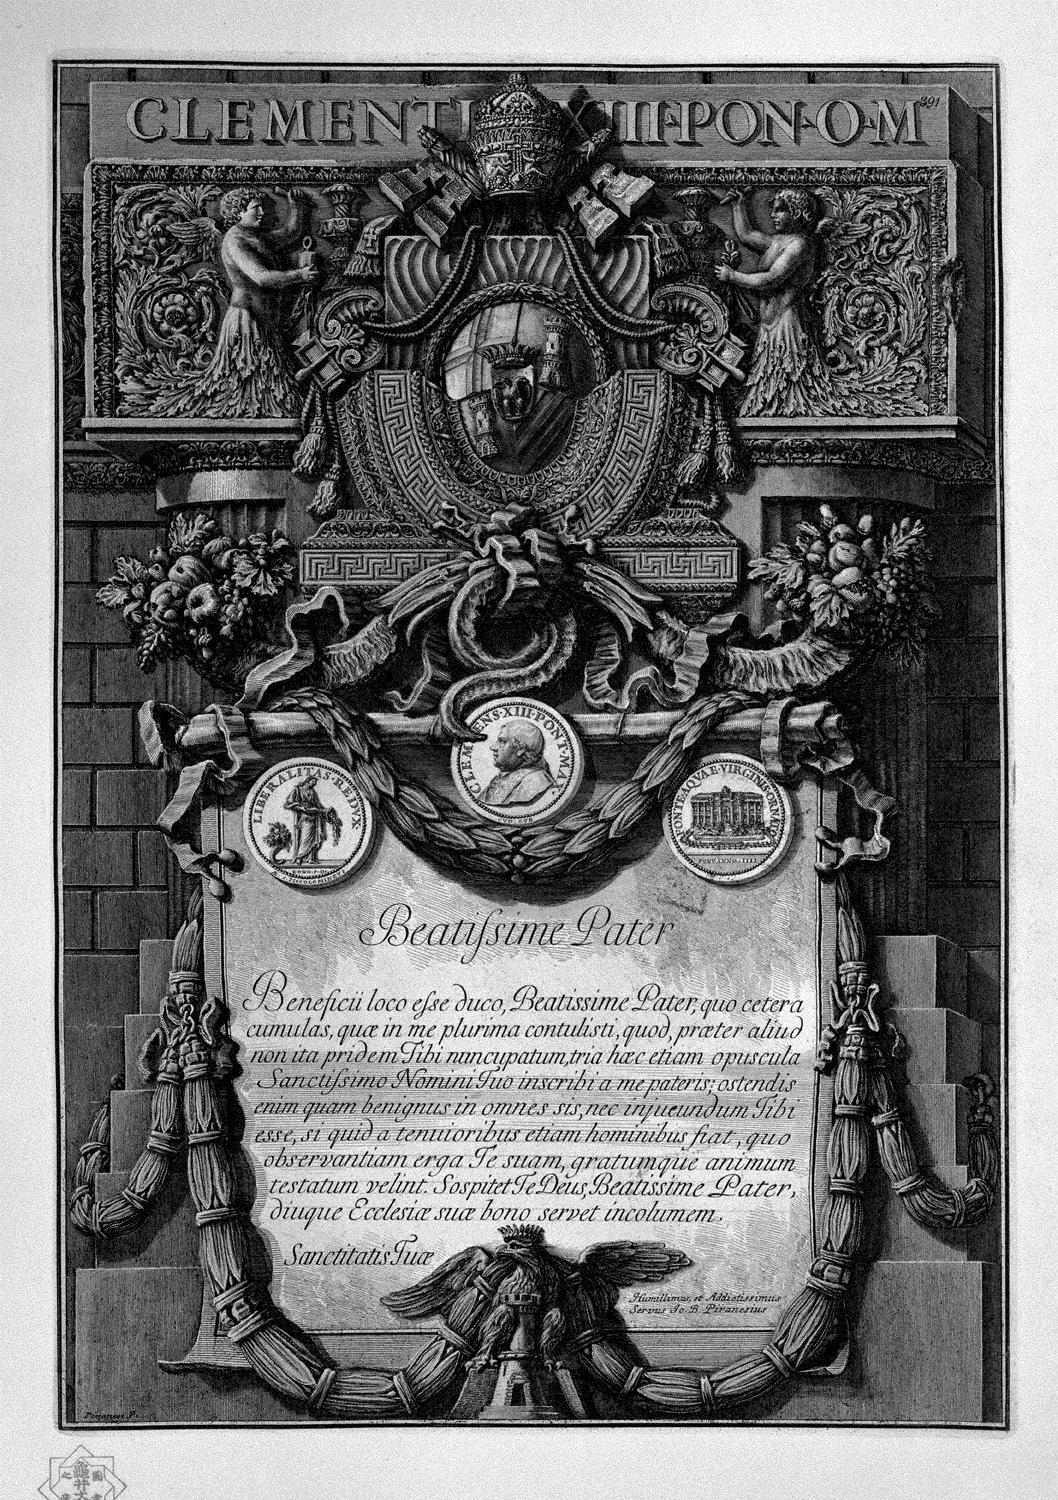 CLEMENTI XIII·PON·O·M
391
CLEMENS·XIII·PONT·MAX
LIBERALITAS·REDUX
FONTE·AQVAE·VIRGINIS·ORNATO
PONT·ANNO·IIII
Beatiſsime Pater
Beneficii loco eſse duco, Beatissime Pater, quo cetera
cumulas, quæ in me plurima contulisti, quod, præter aliud
non ita pridem Tibi nuncupatum, tria hæc etiam opuscula
Sanctiſsimo Nomini Tuo inscribi a me pateris; ostendis
enim quam benignus in omnes sis, nec injucundum Tibi
esse, si quid a tenuioribus etiam hominibus fiat, quo
observantiam erga Te suam, gratumque animum
testatum velint. Sospitet Te Deus, Beatissime Pater,
diuque Ecclesiæ suæ bono servet incolumem.
Sanctitatis Tuæ
Humillimus, et Addictissimus
Servus Jo. B. Piranesius
Piranesi F.